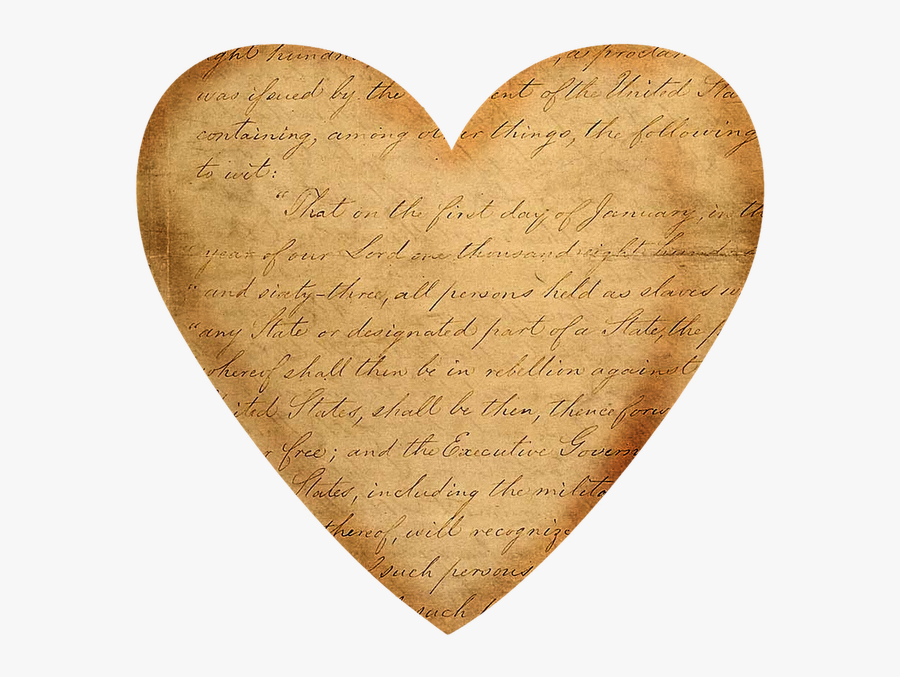 ght hundr , a proclam
was issued by the ent of the United Sta
containing, among o er things, the following
to wit:
"That on the first day of January, in th
year of our Lord one thousand eight hund
"and sixty-three, all persons held as slaves w
"any State or designated part of a State, the p
whereof shall then be in rebellion against
ited States, shall be then, thencefor
r free; and the Executive Govern
States, including the milita
thereof, will recognize
such persons
such